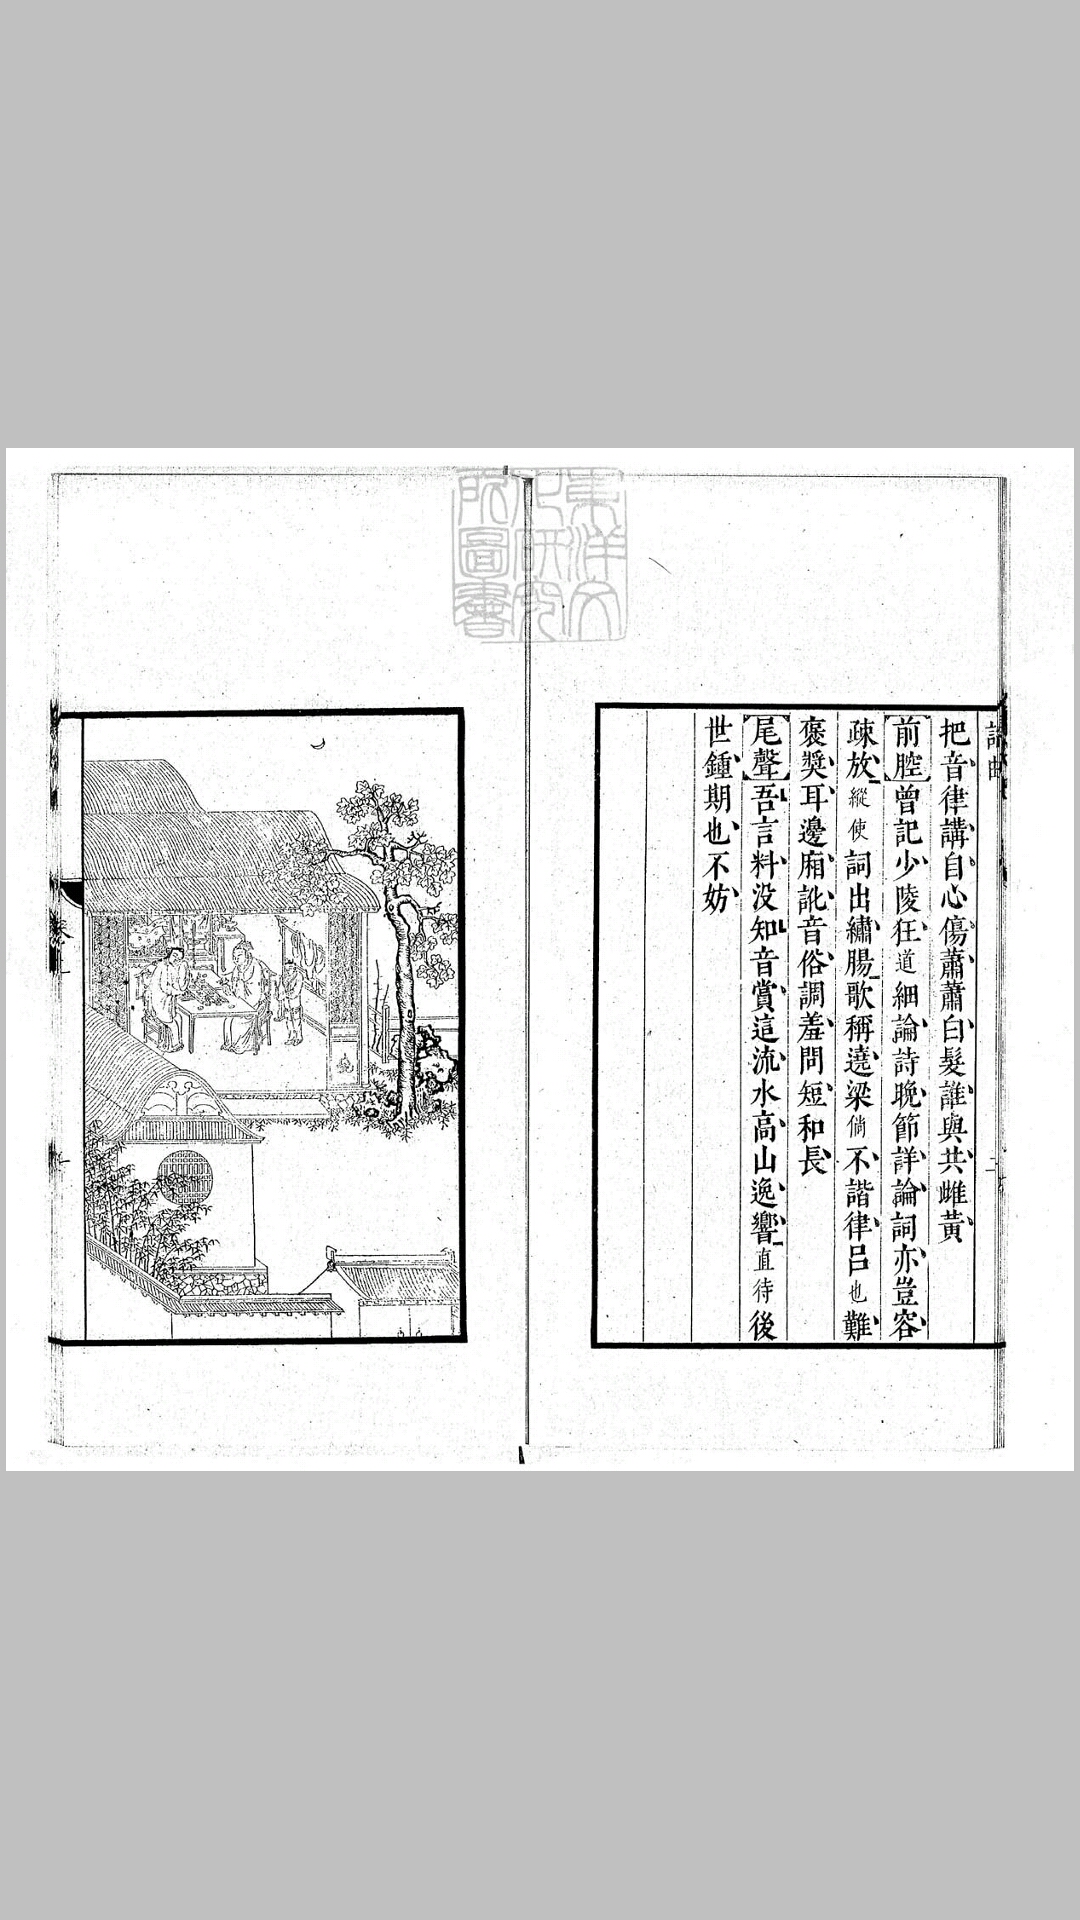 把音律講自心傷蕭蕭白髮誰與共雌黃
前腔曾記少陵狂道細論詩晚節詳論詞亦豈容
疎放縱使詞出繡腸歌稱遶梁倘不諧律呂也難
褒獎耳邊廂訛音俗調羞問短和長
尾聲吾言料没知音賞這流水高山逸響直待後
世鍾期也不妨
東洋文
化研究
所圖書